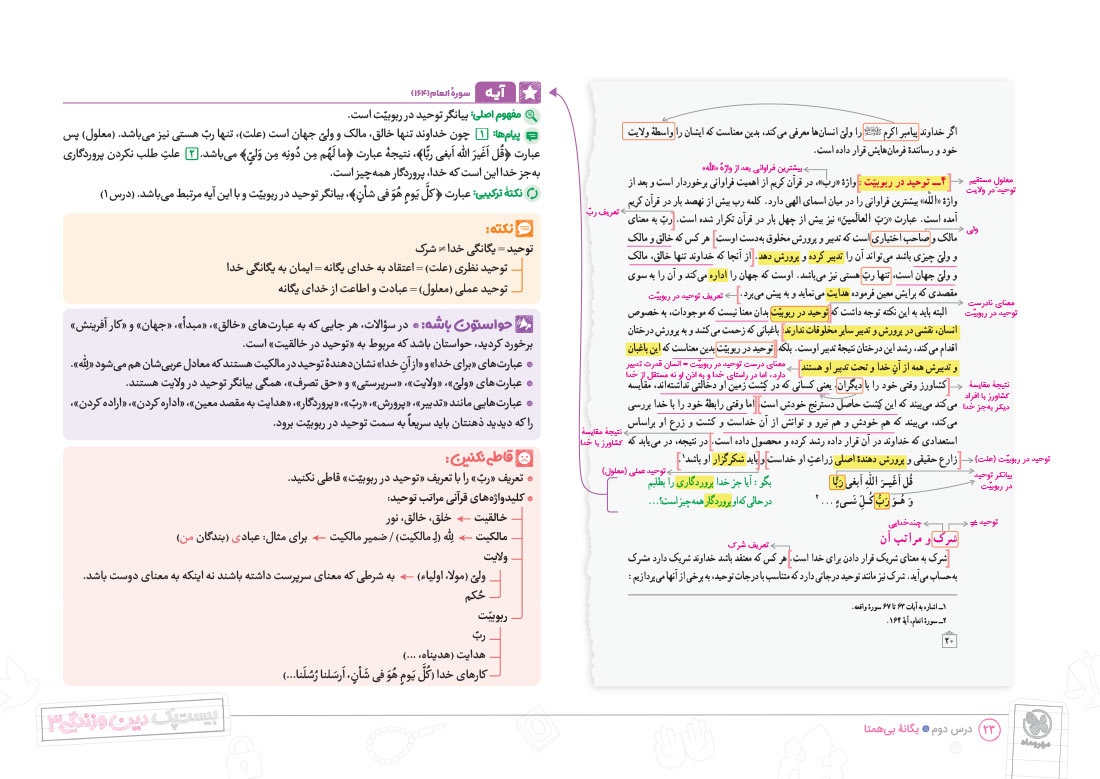 اگر خداوند پیامبر اکرم ﷺ را ولیّ انسان‌ها معرفی می‌کند، بدین معناست که ایشان را واسطهٔ ولایت
خود و رسانندهٔ فرمان‌هایش قرار داده است.
بیشترین فراوانی بعد از واژهٔ «الله»
معلول مستقیم
توحید در ولایت
۴ــ توحید در ربوبیّت : واژهٔ «رب»، در قرآن کریم از اهمیت فراوانی برخوردار است و بعد از
واژهٔ «الله» بیشترین فراوانی را در میان اسمای الهی دارد. کلمه رب بیش از نهصد بار در قرآن کریم
تعریف ربّ
آمده است. عبارت «رَبّ العالَمینَ» نیز بیش از چهل بار در قرآن تکرار شده است. ربّ به معنای
ولی
مالک و صاحب اختیاری است که تدبیر و پرورش مخلوق به‌دست اوست. هر کس که خالق و مالک
و ولیّ چیزی باشد می‌تواند آن را تدبیر کرده و پرورش دهد. از آنجا که خداوند تنها خالق، مالک
و ولیّ جهان است، تنها ربّ هستی نیز می‌باشد. اوست که جهان را اداره می‌کند و آن را به سوی
مقصدی که برایش معین فرموده هدایت می‌نماید و به پیش می‌برد.
تعریف توحید در ربوبیّت
معنای نادرست
توحید در ربوبیّت
البته باید به این نکته توجه داشت که توحید در ربوبیّت بدان معنا نیست که موجودات، به خصوص
انسان، نقشی در پرورش و تدبیر سایر مخلوقات ندارند. باغبانی که زحمت می‌کشد و به پرورش درختان
اقدام می‌کند، رشد این درختان نتیجهٔ تدبیر اوست. بلکه توحید در ربوبیّت بدین معناست که این باغبان
و تدبیرش همه از آنِ خدا و تحت تدبیر او هستند.
معنای درست توحید در ربوبیّت = انسان قدرت تدبیر
دارد، اما در راستای خدا و به اذن او نه مستقل از خدا
نتیجهٔ مقایسهٔ
کشاورز با افراد
دیگر به‌جز خدا
کشاورز وقتی خود را با دیگران یعنی کسانی که در کِشت زمین او دخالتی نداشته‌اند، مقایسه
می‌کند می‌بیند که این کِشت حاصل دسترنج خودش است. اما وقتی رابطهٔ خود را با خدا بررسی
نتیجهٔ مقایسهٔ
کشاورز با خدا
می‌کند، می‌بیند که هم خودش و هم نیرو و توانش از آنِ خداست و کشت و زرع او براساس
استعدادی که خداوند در آن قرار داده رشد کرده و محصول داده است. در نتیجه، در می‌یابد که
توحید در ربوبیّت (علت)
زارع حقیقی و پرورش دهندهٔ اصلی زراعتِ او خداست و باید شکرگزار او باشد.۱
توحید عملی (معلول)
بیانگر توحید
در ربوبیّت
قُل اَغَیرَ اللهِ اَبغی رَبًّا
بگو : آیا جز خدا پروردگاری را بطلبم
وَ هُوَ رَبُّ کُلِّ شَیءٍ ... ۲
در حالی که او پروردگار همه چیز است؟...
توحید ≠
چندخدایی
شرک و مراتب آن
تعریف شرک
شرک به معنای شریک قرار دادن برای خدا است. هر کس که معتقد باشد خداوند شریک دارد مشرک
به‌حساب می‌آید. شرک نیز مانند توحید درجاتی دارد که متناسب با درجات توحید، به برخی از آنها می‌پردازیم :
۱ــ اشاره به آیات ۶۳ تا ۶۷ سورهٔ واقعه.
۲ــ سورهٔ انعام، آیهٔ ۱۶۴.
۲۰
آیه سورهٔ انعام (۱۶۴)
مفهوم اصلی: بیانگر توحید در ربوبیّت است.
پیام‌ها: ۱ چون خداوند تنها خالق، مالک و ولیّ جهان است (علت)، تنها ربّ هستی نیز می‌باشد. (معلول) پس
عبارت ﴿قُل اَغَیرَ الله اَبغی ربًّا﴾، نتیجهٔ عبارت ﴿ما لَهُم مِن دُونِه مِن وَلیّ﴾ می‌باشد. ۲ علتِ طلب نکردن پروردگاری
به‌جز خدا این است که خدا، پروردگار همه‌چیز است.
نکتهٔ ترکیبی: عبارت ﴿کُلَّ یَومٍ هُوَ فی شأنٍ﴾، بیانگر توحید در ربوبیّت و با این آیه مرتبط می‌باشد. (درس ۱)
نکته:
توحید = یگانگی خدا ≠ شرک
توحید نظری (علت) = اعتقاد به خدای یگانه = ایمان به یگانگی خدا
توحید عملی (معلول) = عبادت و اطاعت از خدای یگانه
حواستون باشه: • در سؤالات، هر جایی که به عبارت‌های «خالق»، «مبدأ»، «جهان» و «کار آفرینش»
برخورد کردید، حواستان باشد که مربوط به «توحید در خالقیت» است.
• عبارت‌های «برای خدا» و «از آنِ خدا» نشان‌دهندهٔ توحید در مالکیت هستند که معادل عربی‌شان هم می‌شود «لِلّه».
• عبارت‌های «ولیّ»، «ولایت»، «سرپرستی» و «حق تصرف»، همگی بیانگر توحید در ولایت هستند.
• عبارت‌هایی مانند «تدبیر»، «پرورش»، «ربّ»، «پروردگار»، «هدایت به مقصد معین»، «اداره کردن»، «اراده کردن»،
را که دیدید ذهنتان باید سریعاً به سمت توحید در ربوبیّت برود.
قاطی نکنین:
• تعریف «ربّ» را با تعریف «توحید در ربوبیّت» قاطی نکنید.
• کلیدواژه‌های قرآنی مراتب توحید:
خالقیت ← خلق، خالق، نور
مالکیت ← لِلّه (لِـ مالکیت) / ضمیر مالکیت ← برای مثال: عبادی (بندگان من)
ولایت
ولیّ (مولا، اولیاء) ← به شرطی که معنای سرپرست داشته باشند نه اینکه به معنای دوست باشد.
حُکم
ربوبیّت
ربّ
هدایت (هدیناه، ...)
کارهای خدا (کُلَّ یَومٍ هُوَ فی شَأنٍ، اَرسَلنا رُسُلَنا...)
بیست‌پک دین و زندگی ۳
۲۳ درس دوم یگانهٔ بی‌همتا
مهروماه